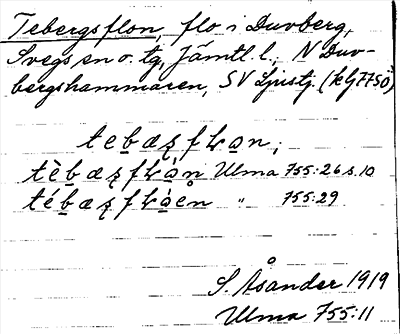 Tebergsflon, flo i Duvberg,
Svegs sn o. tg, Jämtl. l., N Duv-
bergshammaren, SV Ljustj. (kg 7750)
tebæʂfɽɑn,
tèbæʂfɽɑ̀n Ulma 755:26 s. 10
tébæʂfɽɑ̀en " 755:29
S. Åsander 1919
Ulma 755:11